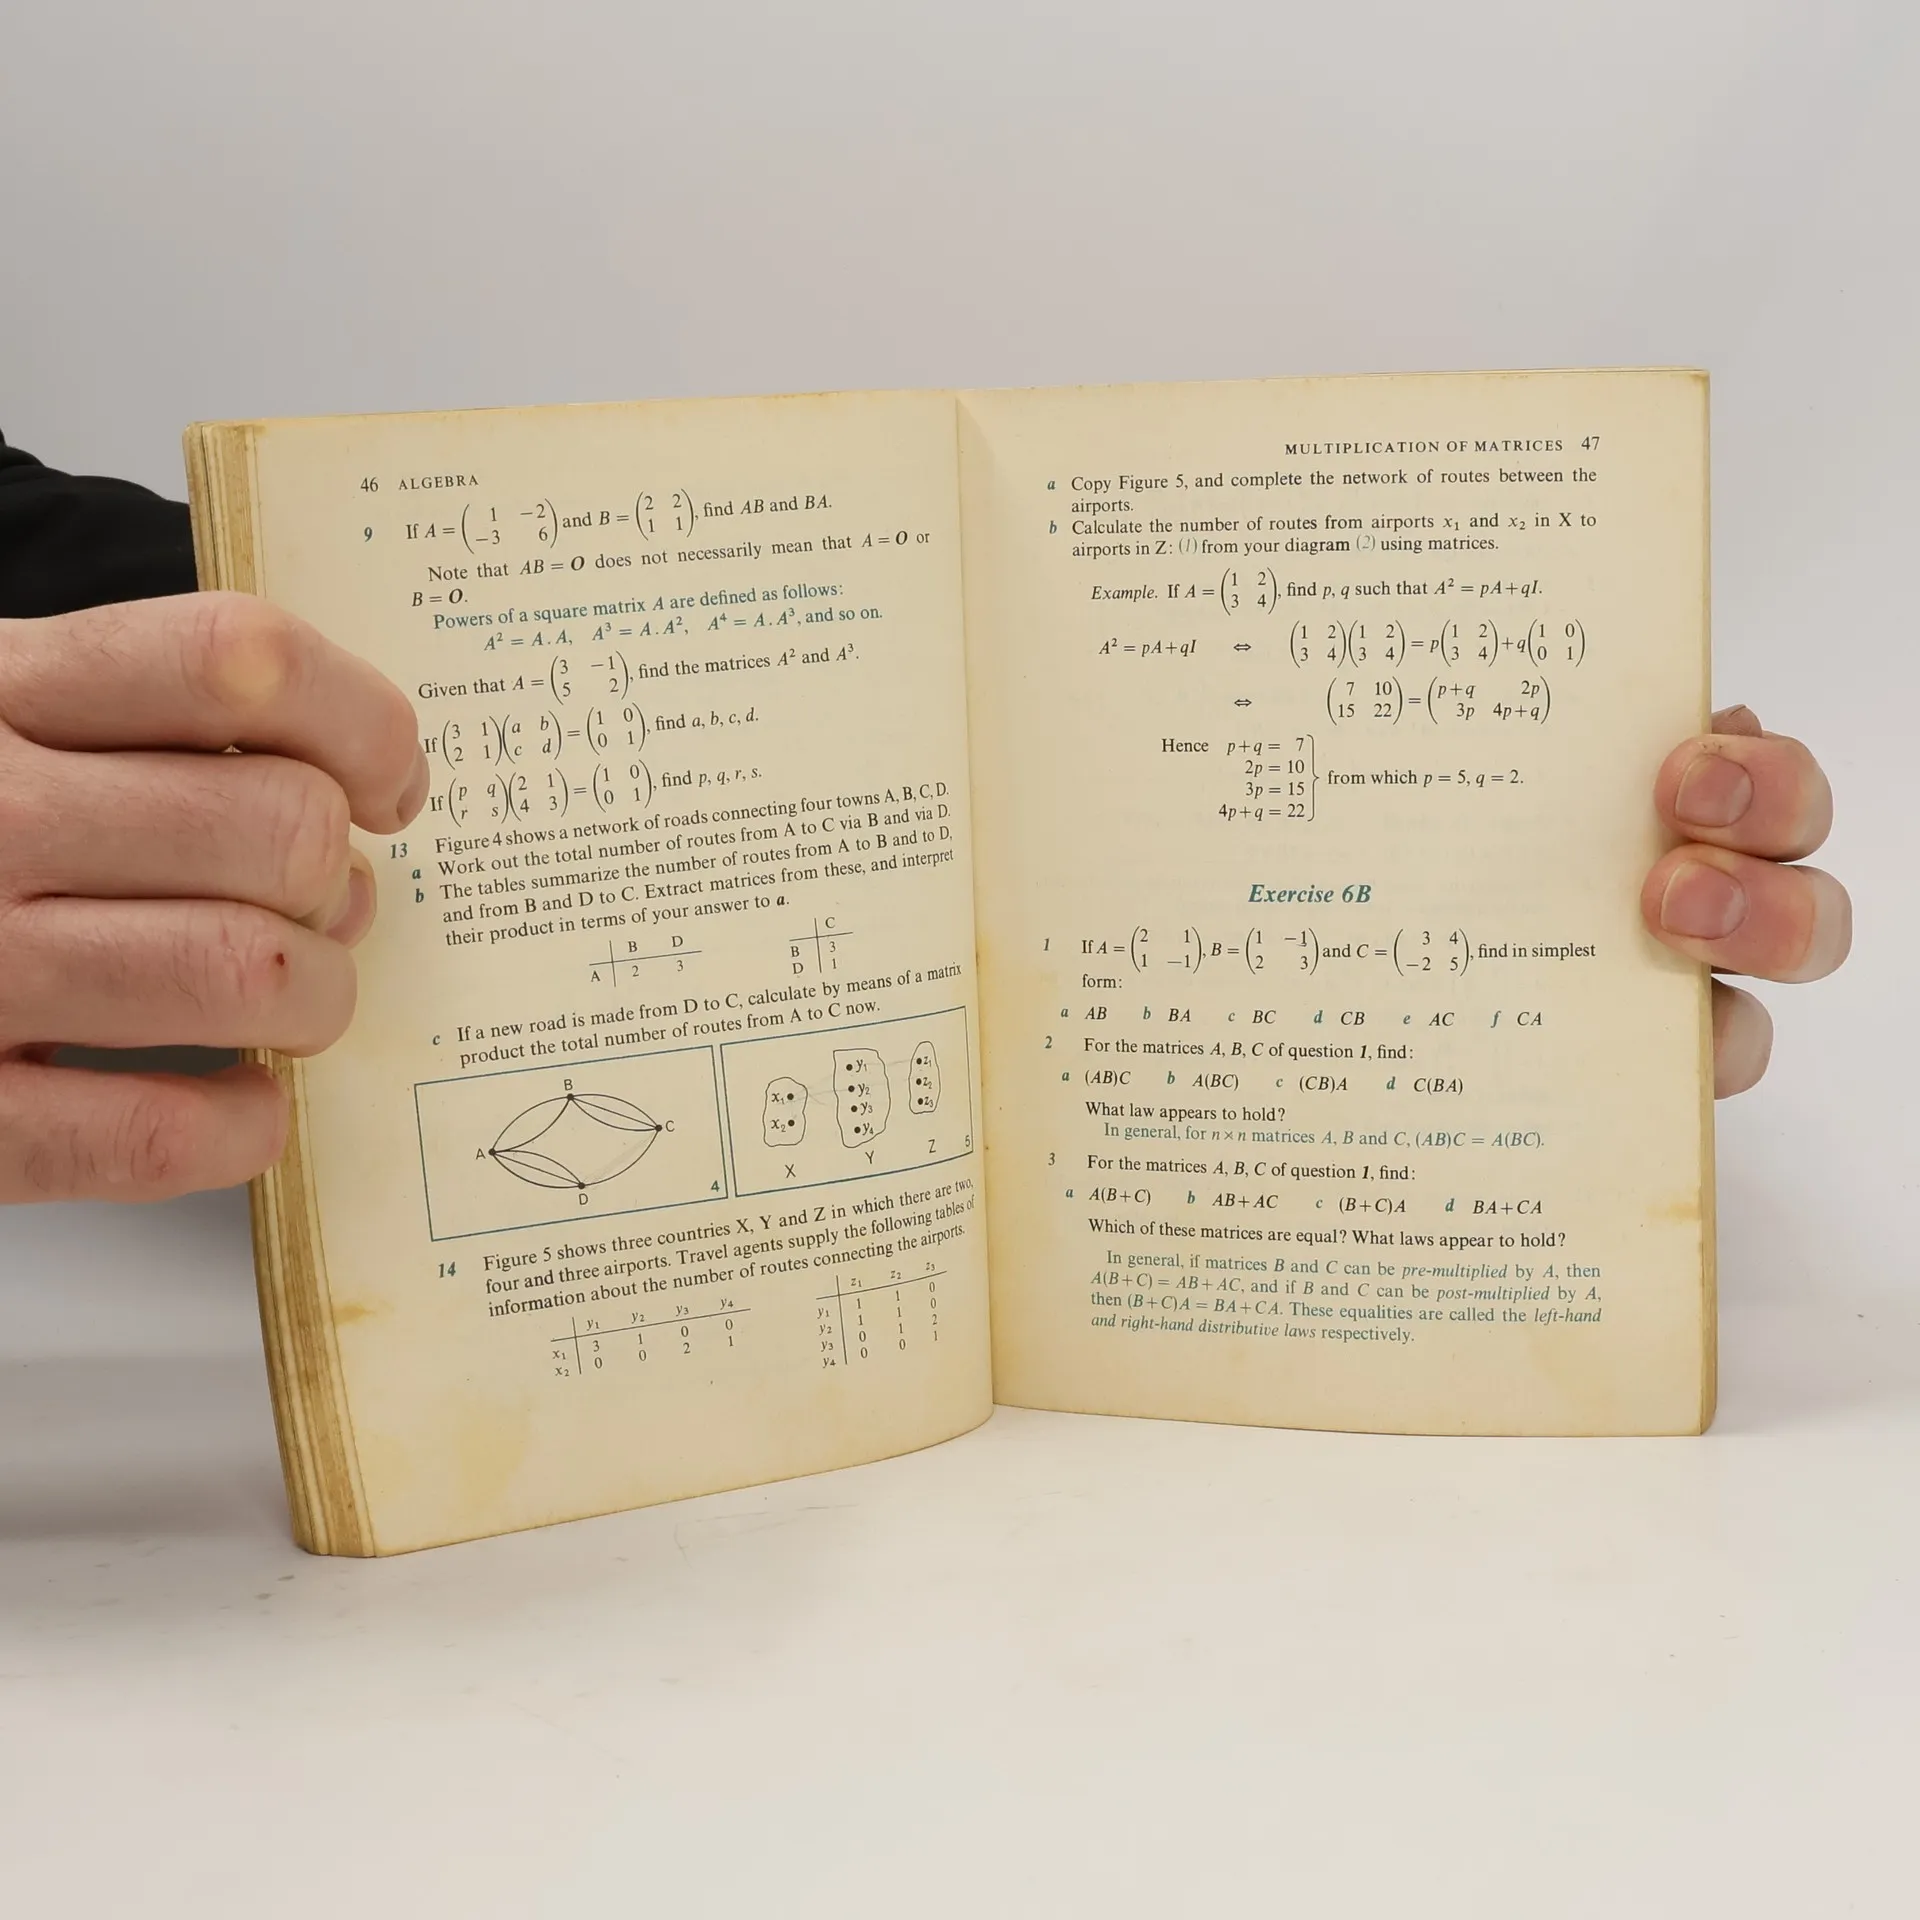 46 ALGEBRA
9 If A = ( 1 −2 −3 6 ) and B = ( 2 2 1 1 ), find AB and BA.
Note that AB = O does not necessarily mean that A = O or
B = O.
Powers of a square matrix A are defined as follows:
A² = A . A, A³ = A . A², A⁴ = A . A³, and so on.
Given that A = ( 3 −1 5 2 ), find the matrices A² and A³.
If ( 3 1 2 1 )( a b c d ) = ( 1 0 0 1 ), find a, b, c, d.
If ( p q r s )( 2 1 4 3 ) = ( 1 0 0 1 ), find p, q, r, s.
13 Figure 4 shows a network of roads connecting four towns A, B, C, D.
a Work out the total number of routes from A to C via B and via D.
b The tables summarize the number of routes from A to B and to D,
and from B and D to C. Extract matrices from these, and interpret
their product in terms of your answer to a.
B D
A 2 3
C
B 3
D 1
c If a new road is made from D to C, calculate by means of a matrix
product the total number of routes from A to C now.
B
A
C
D
4
x₁
x₂
X
y₁
y₂
y₃
y₄
Y
z₁
z₂
z₃
Z
5
14 Figure 5 shows three countries X, Y and Z in which there are two,
four and three airports. Travel agents supply the following tables of
information about the number of routes connecting the airports.
y₁ y₂ y₃ y₄
x₁ 3 1 0 0
x₂ 0 0 2 1
z₁ z₂ z₃
y₁ 1 1 0
y₂ 1 1 0
y₃ 0 1 2
y₄ 0 0 1
MULTIPLICATION OF MATRICES 47
a Copy Figure 5, and complete the network of routes between the
airports.
b Calculate the number of routes from airports x₁ and x₂ in X to
airports in Z: (1) from your diagram (2) using matrices.
Example. If A = ( 1 2 3 4 ), find p, q such that A² = pA+qI.
A² = pA+qI ⇔ ( 1 2 3 4 )( 1 2 3 4 ) = p( 1 2 3 4 )+q( 1 0 0 1 )
⇔ ( 7 10 15 22 ) = ( p+q 2p 3p 4p+q )
Hence p+q = 7
2p = 10
3p = 15
4p+q = 22
from which p = 5, q = 2.
Exercise 6B
1 If A = ( 2 1 1 −1 ), B = ( 1 −1 2 3 ) and C = ( 3 4 −2 5 ), find in simplest
form:
a AB b BA c BC d CB e AC f CA
2 For the matrices A, B, C of question 1, find:
a (AB)C b A(BC) c (CB)A d C(BA)
What law appears to hold?
In general, for n×n matrices A, B and C, (AB)C = A(BC).
3 For the matrices A, B, C of question 1, find:
a A(B+C) b AB+AC c (B+C)A d BA+CA
Which of these matrices are equal? What laws appear to hold?
In general, if matrices B and C can be pre-multiplied by A, then
A(B+C) = AB+AC, and if B and C can be post-multiplied by A,
then (B+C)A = BA+CA. These equalities are called the left-hand
and right-hand distributive laws respectively.